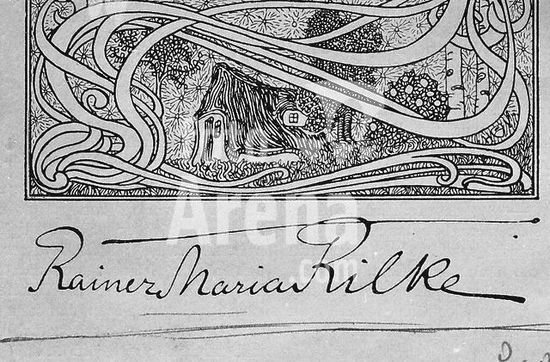 Arena
.com
Rainer Maria Rilke